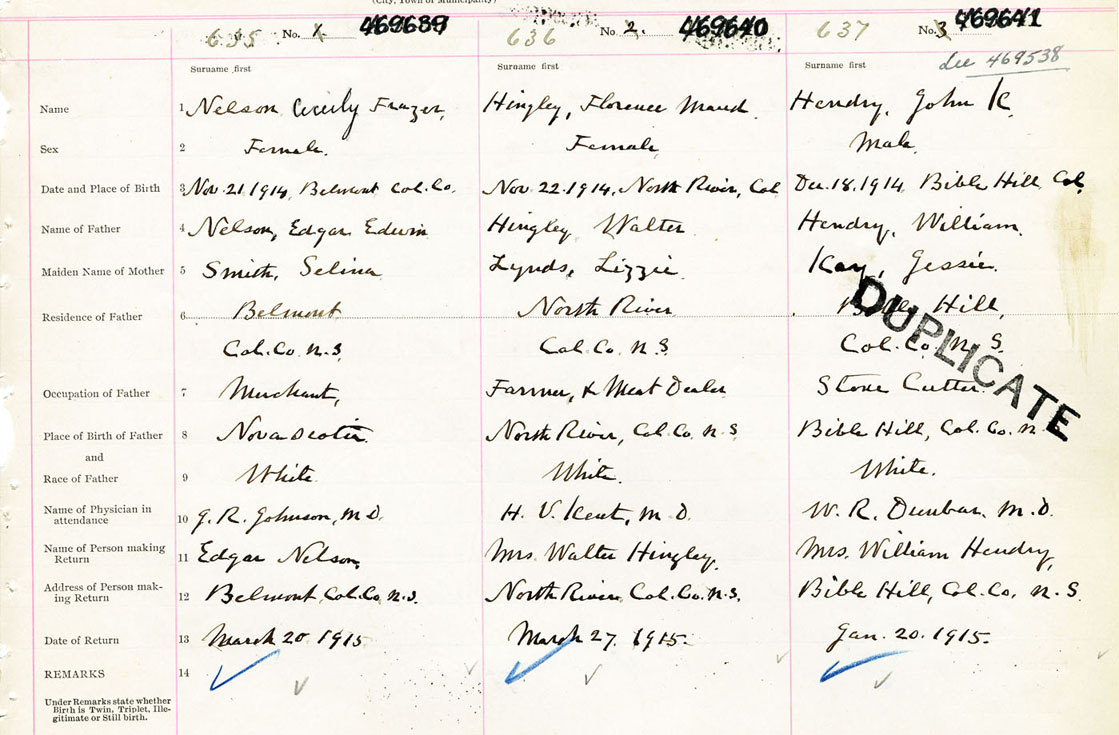 (City, Town or Municipality)
635 No. 1 469639 636 No. 2. 469640 637 No. 3 469641
See 469538
Surname first Surname first Surname first
Name 1 Nelson Cecily Frazer, Hingley, Florence Maud. Hendry, John K
Sex 2 Female. Female Male
Date and Place of Birth 3 Nov. 21. 1914, Belmont Col. Co. Nov. 22. 1914, North River, Col Dec. 18. 1914 Bible Hill, Col.
Name of Father 4 Nelson, Edgar Edwin Hingley, Walter Hendry, William.
Maiden Name of Mother 5 Smith, Selina Lynds, Lizzie. Kay, Jessie.
Residence of Father 6 Belmont North River Bible Hill,
Col. Co. N.S. Col. Co. N.S. Col. Co. N.S.
DUPLICATE
Occupation of Father 7 Merchant, Farmer, & Meat Dealer Stone Cutter
Place of Birth of Father 8 Nova Scotia North River, Col. Co. N.S Bible Hill, Col. Co. N.S.
and
Race of Father 9 White. White. White.
Name of Physician in
attendance 10 G. R. Johnson, M.D. H. V. Kent, M.D. W. R. Dunbar. M.D.
Name of Person making
Return 11 Edgar Nelson, Mrs. Walter Hingley. Mrs. William Hendry,
Address of Person mak-
ing Return 12 Belmont, Col. Co. N.S. North River, Col. Co. N.S. Bible Hill, Col. Co. N.S.
Date of Return 13 March 20 1915 March 27. 1915. Jan. 20. 1915.
REMARKS 14
Under Remarks state whether
Birth is Twin, Triplet, Ille-
gitimate or Still birth.